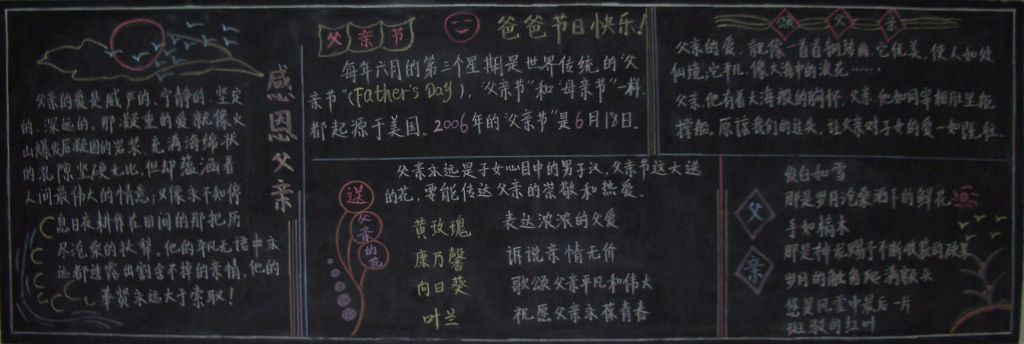 感恩父亲
父亲的爱是威严的、宁静的、坚定
的、深远的。那凝重的爱就像火
山爆发后凝固的岩浆,充满海绵状
的孔隙坚硬无比,但却蕴涵着
人间最伟大的情意;又像永不知停
息日夜耕作在田间的那把历
尽沧桑的犁。他的平凡无语中永
远都透露出割舍不掉的亲情,他的
奉贤永远大于索取!
父亲节
爸爸节日快乐!
每年六月的第三个星期是世界传统的“父
亲节”(Father's Day),“父亲节”和“母亲节”一样
都起源于美国。2006年的“父亲节”是6月18日。
送父亲的花
父亲永远是子女心目中的男子汉,父亲节这天送
的花,要能传达父亲的崇敬和热爱。
黄玫瑰 表达浓浓的父爱
康乃馨 诉说亲情无价
向日葵 歌颂父亲平凡和伟大
叶兰 祝愿父亲永葆青春
颂父亲
父亲的爱,就像一首首钢琴曲,它优美,使人如处
仙境;它平凡,像大海中的浪花……
父亲,他有着大海般的胸怀,父亲,他如同宰相肚里能
撑船,原谅我们的过失,让父亲对子女的爱一如既往。
父亲
鬓白如雪
那是岁月沧桑洒下的鲜花
手如槁木
那是神龙赐予不断收获的硕果
岁月的触角爬满额头
您是风雪中最后一片
斑驳的红叶